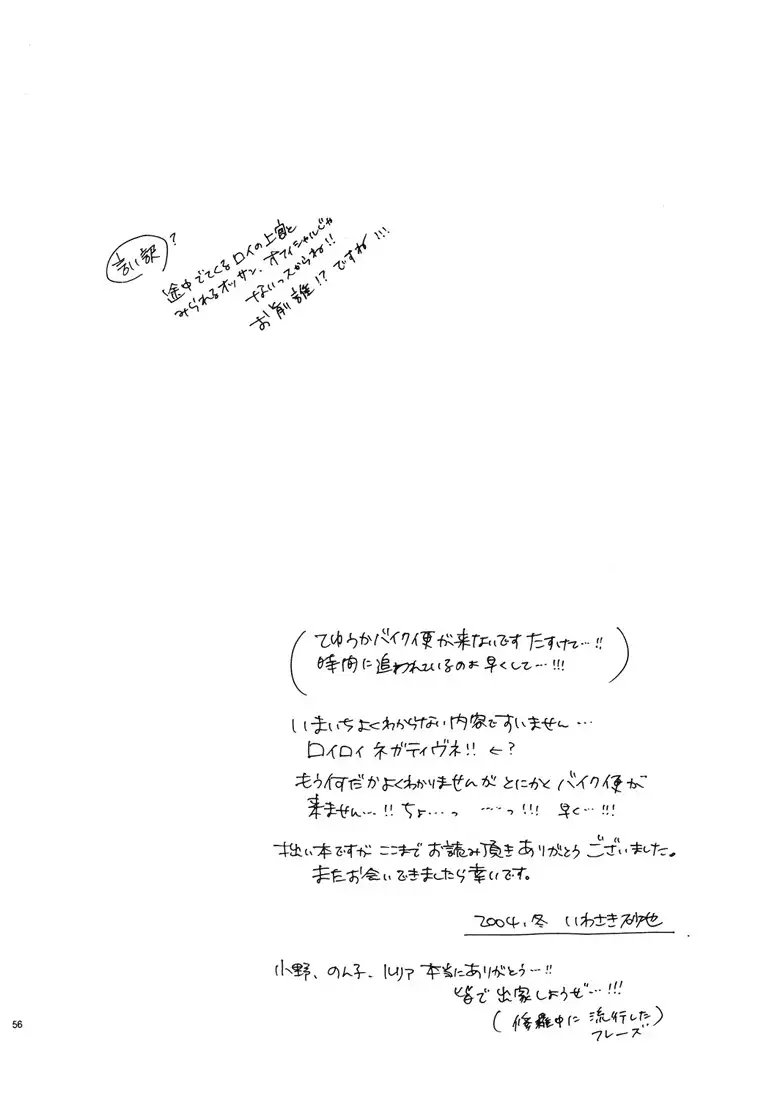 言い訳?
途中ででてくるロイの上官と
みられるオッサン、オフィシャルじゃ
ないっスからね!!
お前誰!?ですね!!!
(てゆうかバイク便が来ないですたすけて…!!
時間に追われているのお早くして…!!!)
いまいちよくわからない内容ですいません…
ロイロイネガティヴネ!!←?
もう何だかよくわかりませんがとにかくバイク便が
来ません…!!ちょ…っ ……っ!!! 早く…!!!
拙い本ですがここまでお読み頂きありがとうございました。
またお会いできましたら幸いです。
2004.冬 いわさき砂也
小野、のん子、ルリア本当にありがとう…!!
皆で出家しようぜ…!!!
(修羅中に流行した
フレーズ)
56